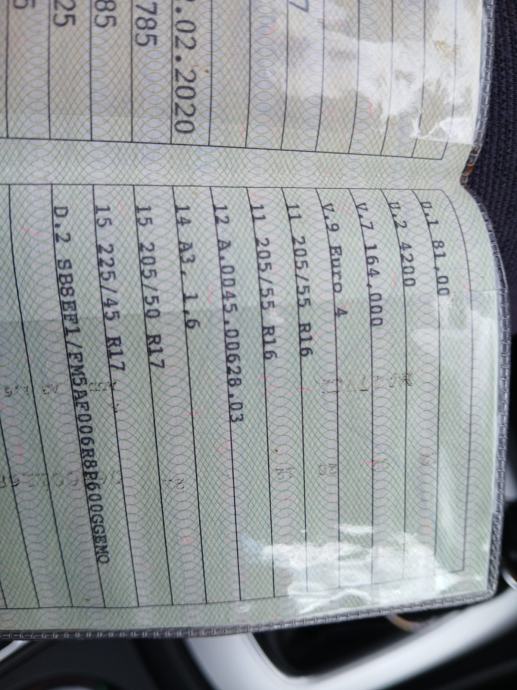 7
.02.2020
785
85
25
5
U.1 81,00
U.2 4200
V.7 164,000
V.9 Euro 4
11 205/55 R16
11 205/55 R16
12 A.0045.00628.03
14 A3, 1,6
15 205/50 R17
15 225/45 R17